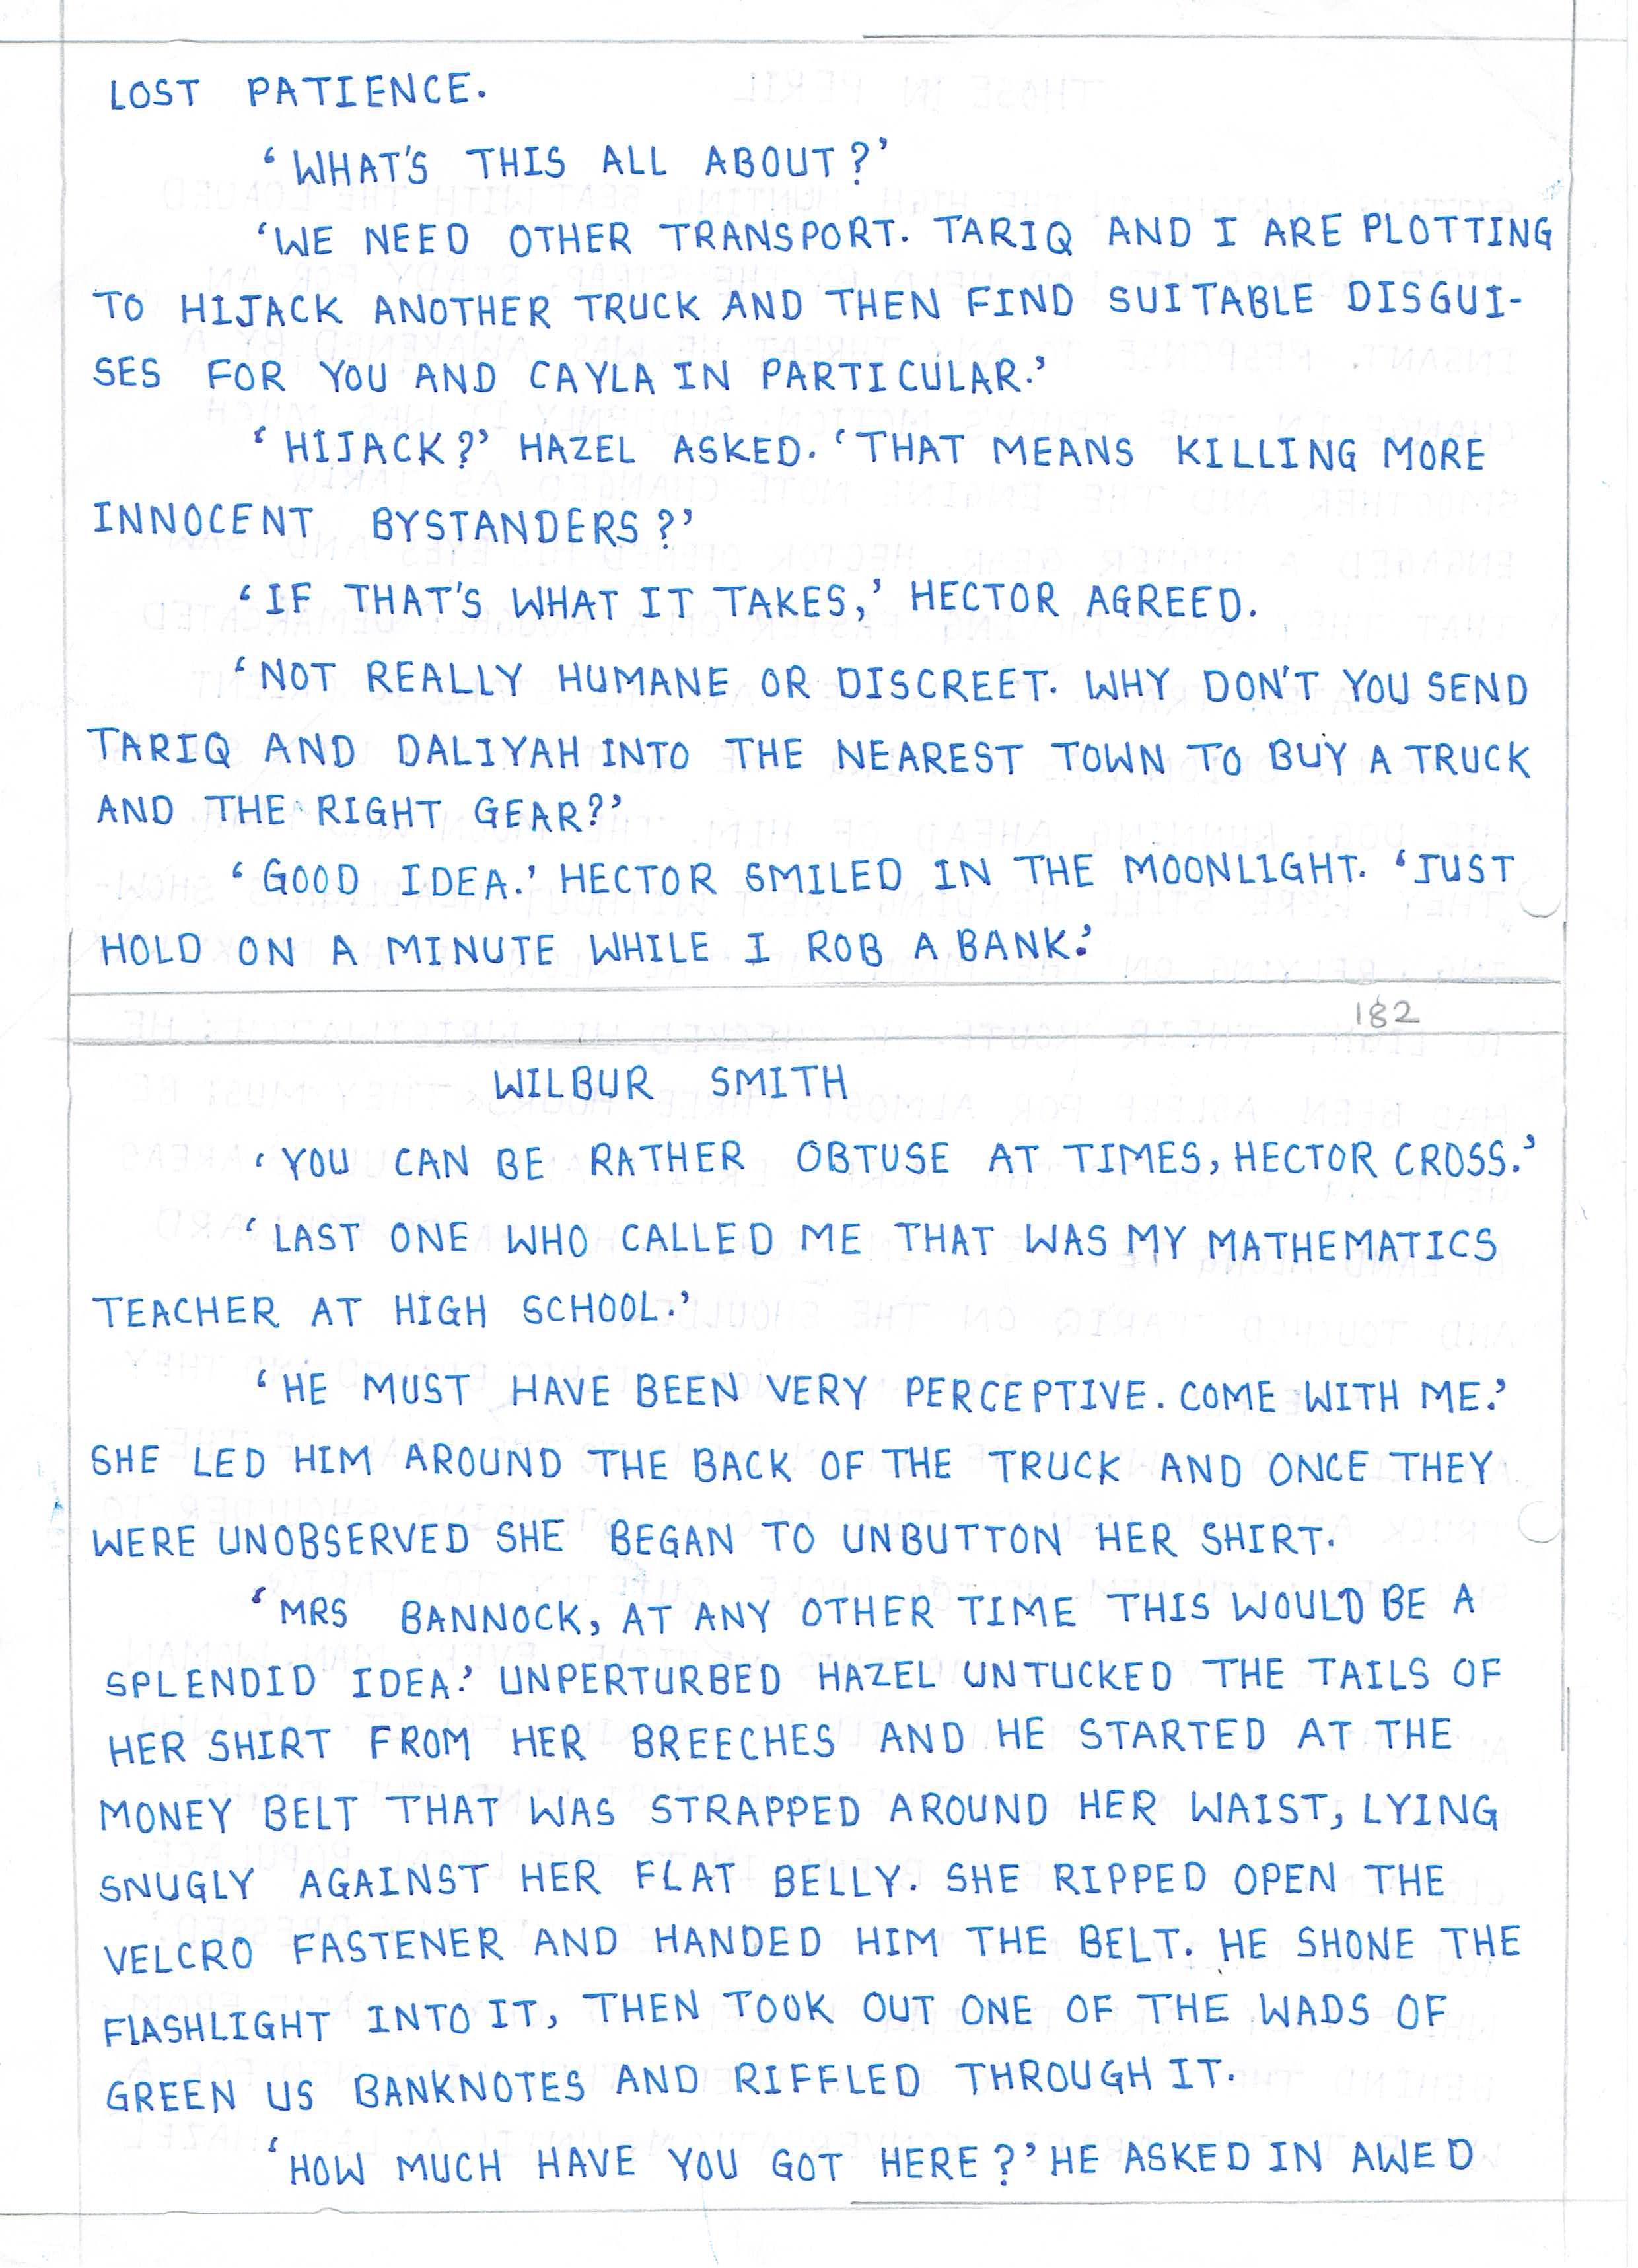 LOST PATIENCE.
‘WHAT'S THIS ALL ABOUT?’
‘WE NEED OTHER TRANSPORT. TARIQ AND I ARE PLOTTING
TO HIJACK ANOTHER TRUCK AND THEN FIND SUITABLE DISGUI-
SES FOR YOU AND CAYLA IN PARTICULAR.’
‘HIJACK?’ HAZEL ASKED. ‘THAT MEANS KILLING MORE
INNOCENT BYSTANDERS?’
‘IF THAT'S WHAT IT TAKES,’ HECTOR AGREED.
‘NOT REALLY HUMANE OR DISCREET. WHY DON'T YOU SEND
TARIQ AND DALIYAH INTO THE NEAREST TOWN TO BUY A TRUCK
AND THE RIGHT GEAR?’
‘GOOD IDEA.’ HECTOR SMILED IN THE MOONLIGHT. ‘JUST
HOLD ON A MINUTE WHILE I ROB A BANK.’
182
WILBUR SMITH
‘YOU CAN BE RATHER OBTUSE AT TIMES, HECTOR CROSS.’
‘LAST ONE WHO CALLED ME THAT WAS MY MATHEMATICS
TEACHER AT HIGH SCHOOL.’
‘HE MUST HAVE BEEN VERY PERCEPTIVE. COME WITH ME.’
SHE LED HIM AROUND THE BACK OF THE TRUCK AND ONCE THEY
WERE UNOBSERVED SHE BEGAN TO UNBUTTON HER SHIRT.
‘MRS BANNOCK, AT ANY OTHER TIME THIS WOULD BE A
SPLENDID IDEA.’ UNPERTURBED HAZEL UNTUCKED THE TAILS OF
HER SHIRT FROM HER BREECHES AND HE STARTED AT THE
MONEY BELT THAT WAS STRAPPED AROUND HER WAIST, LYING
SNUGLY AGAINST HER FLAT BELLY. SHE RIPPED OPEN THE
VELCRO FASTENER AND HANDED HIM THE BELT. HE SHONE THE
FLASHLIGHT INTO IT, THEN TOOK OUT ONE OF THE WADS OF
GREEN US BANKNOTES AND RIFFLED THROUGH IT.
‘HOW MUCH HAVE YOU GOT HERE?’ HE ASKED IN AWED